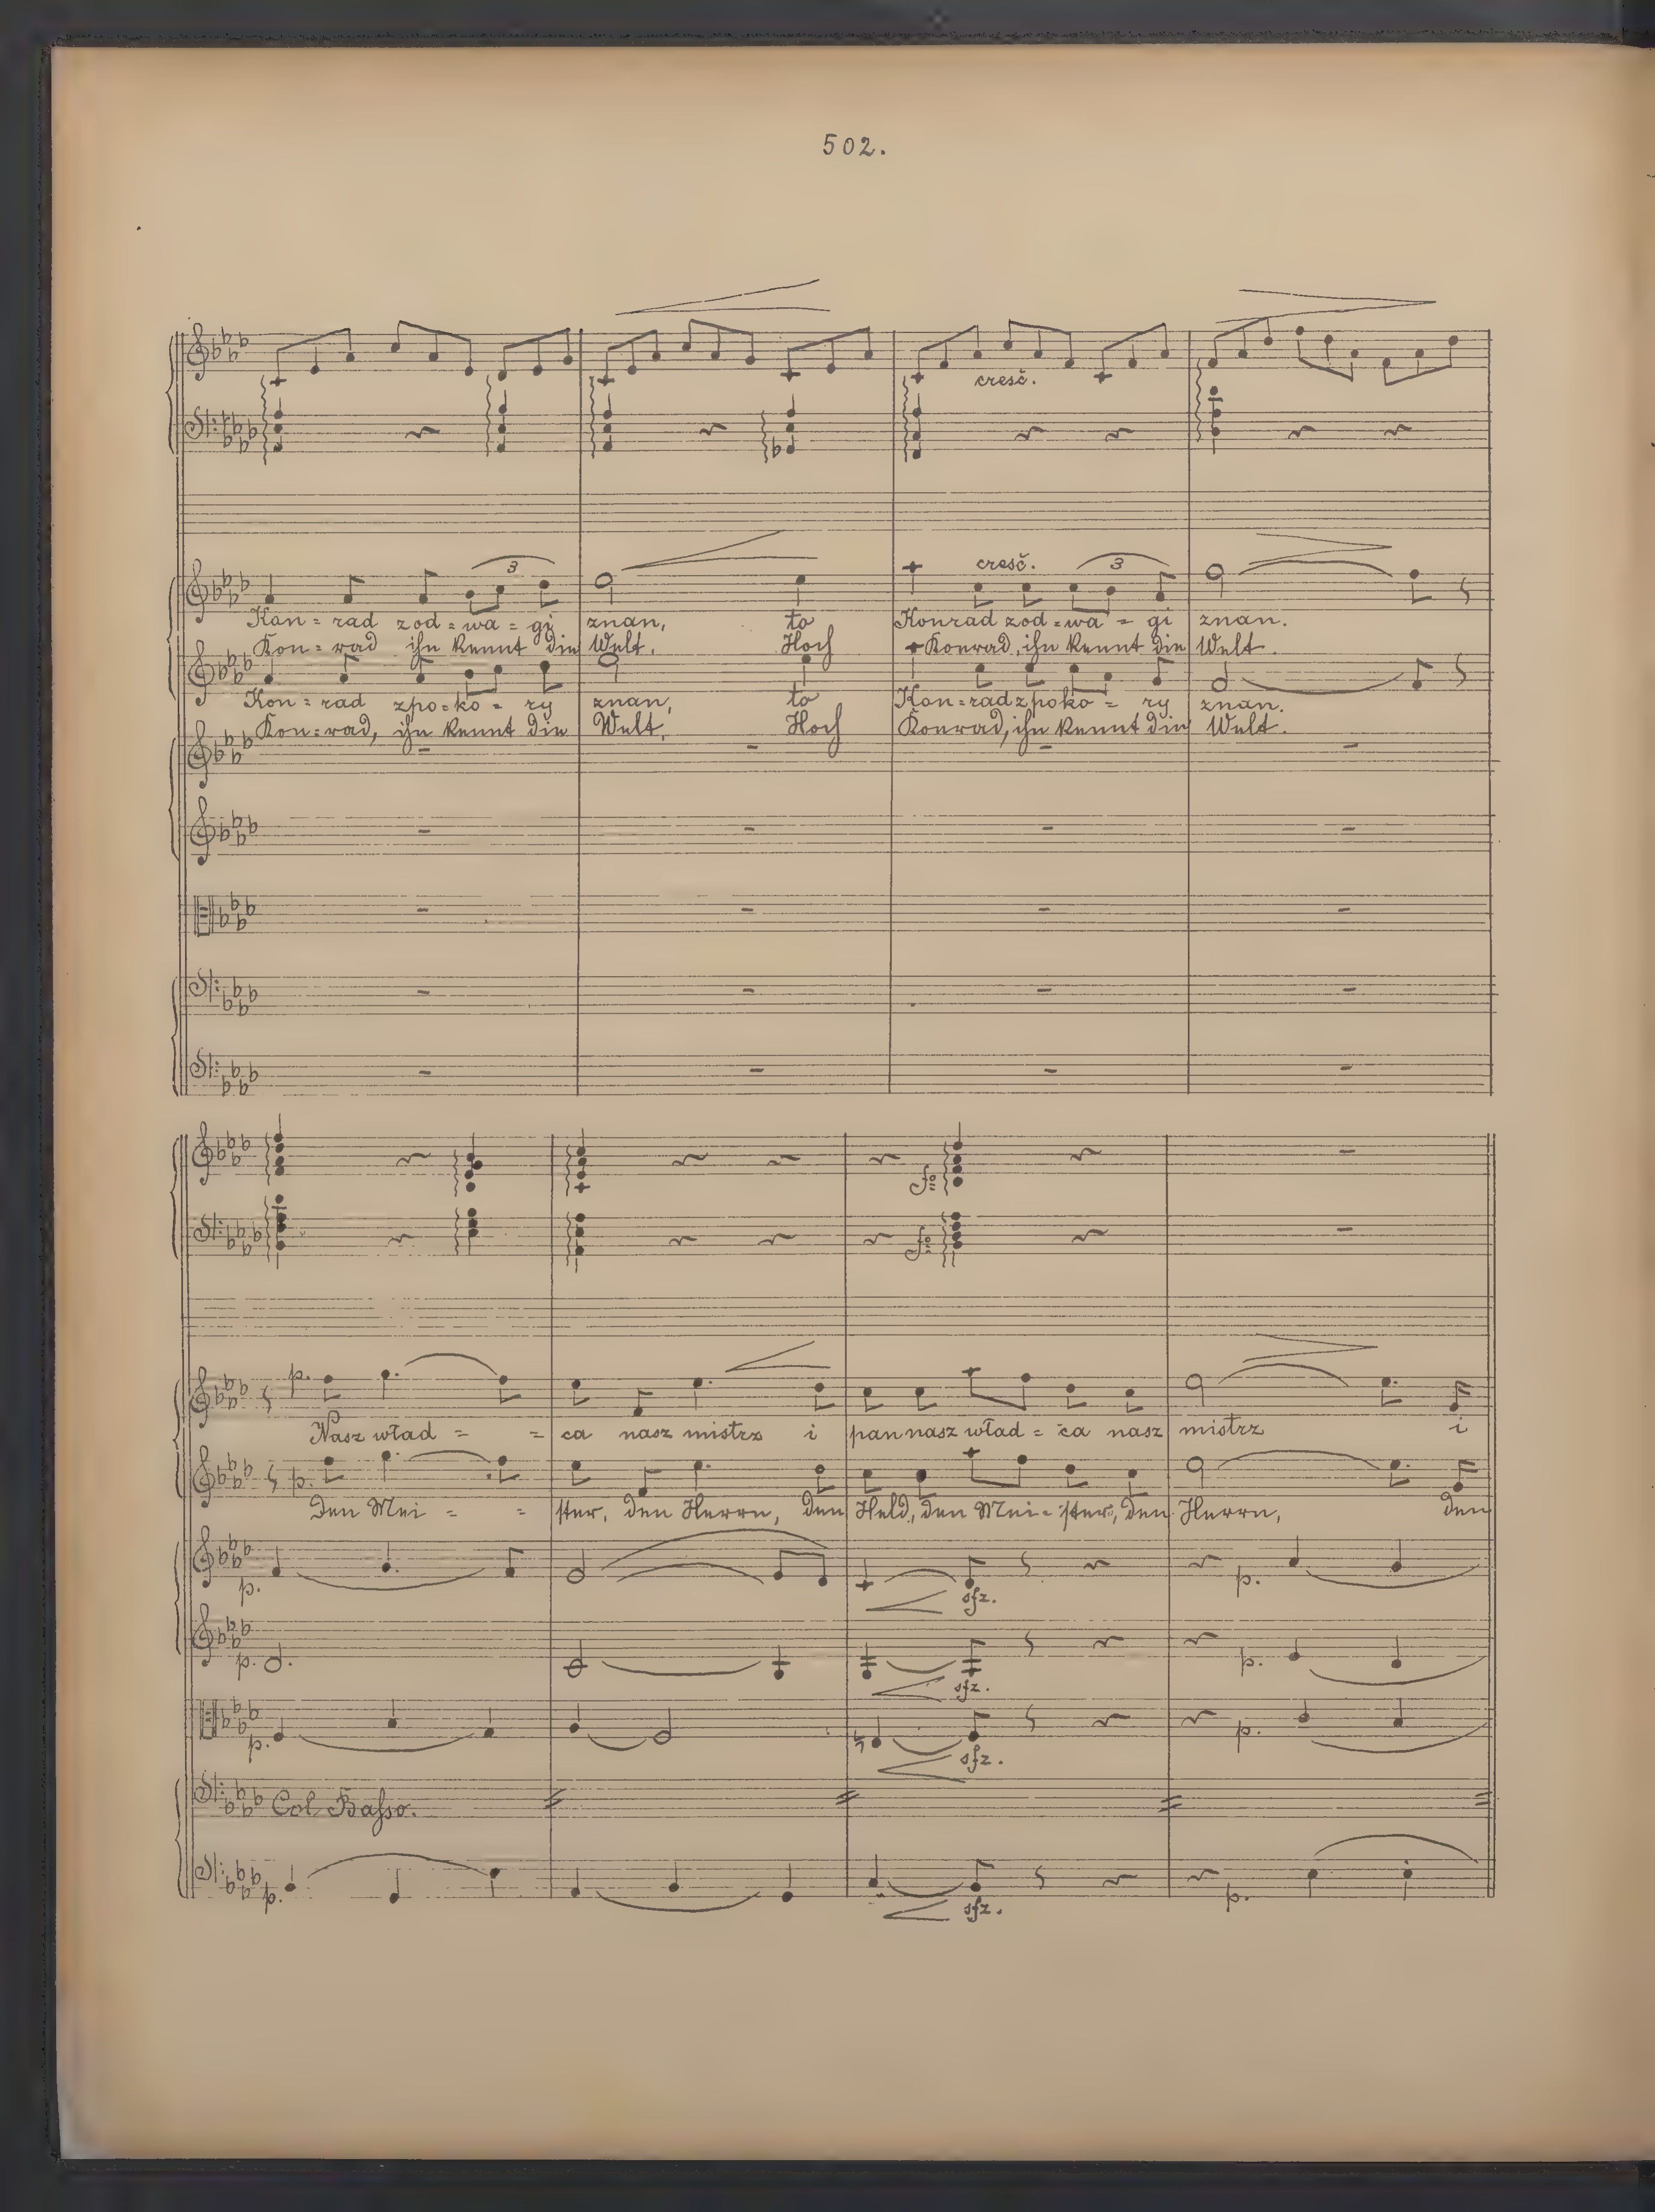 502.
cresč.
3 cresč. 3
Kon = rad zod = wa = gi znan, to Konrad zod = wa = gi znan.
Kon = rad ihn kennt die Welt. Hoch Konrad, ihn kennt die Welt.
Kon = rad zpo = ko = ry znan, to Kon = rad zpoko = ry znan.
Kon = rad, ihn kennt die Welt. Hoch Konrad, ihn kennt die Welt.
fo
fo
p.
Nasz wład = = ca nasz mistrz i pan nasz wład = ca nasz mistrz i
p.
Den Mei = = ster, den Herrn, den Held, den Mei = ster, den Herrn, den
p. sfz. p.
p. sfz. p.
p. sfz. p.
Col Basso.
p. sfz. p.